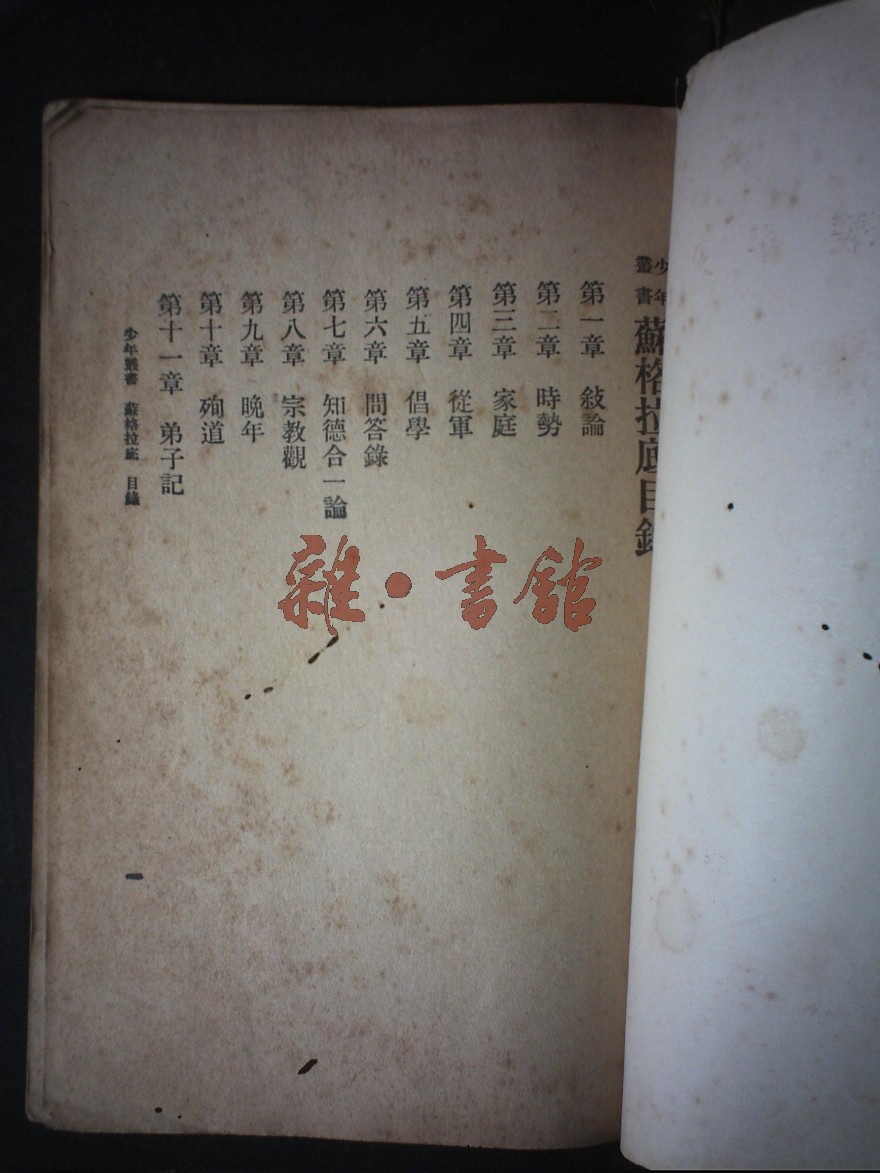 少年叢書 蘇格拉底目錄
第一章 敍論
第二章 時勢
第三章 家庭
第四章 從軍
第五章 倡學
第六章 問答錄
第七章 知德合一論
第八章 宗教觀
第九章 晚年
第十章 殉道
第十一章 弟子記
少年叢書 蘇格拉底 目錄
一
雜·書館